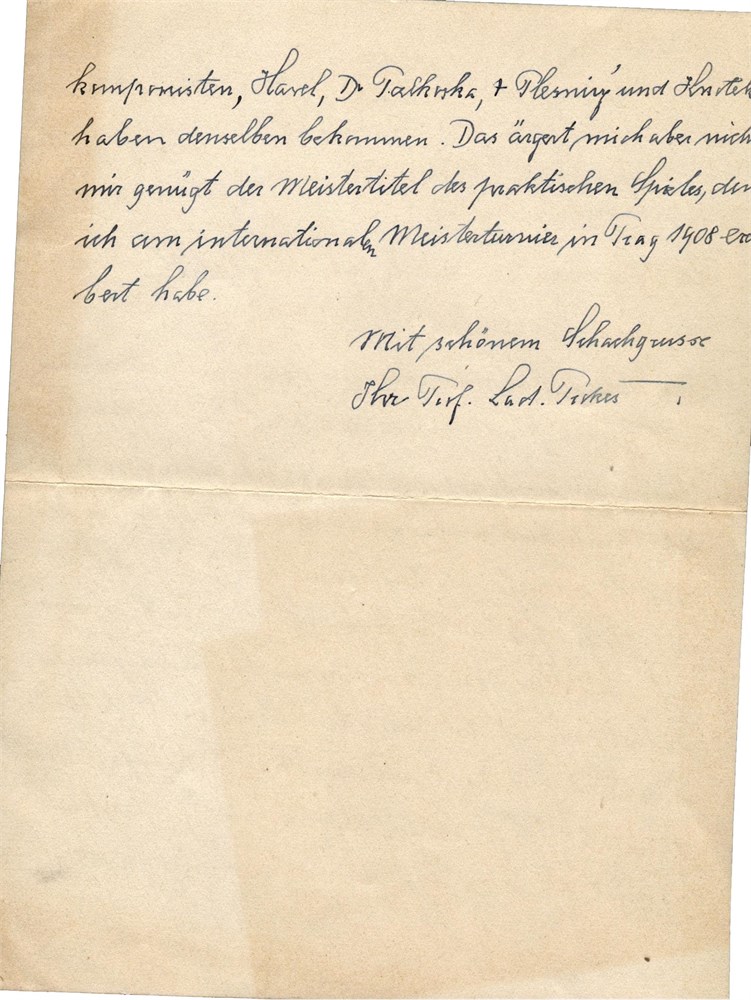 komponisten, Havel, Dr Palkoska, + Plesnivý und Knotek
haben denselben bekommen. Das ärgert mich aber nich
mir genügt der Meistertitel des praktischen Spieles, den
ich am internationalen Meisterturnier in Prag 1908 ero
bert habe.
Mit schönem Schachgrusse
Ihr Prof. Lad. Prokes